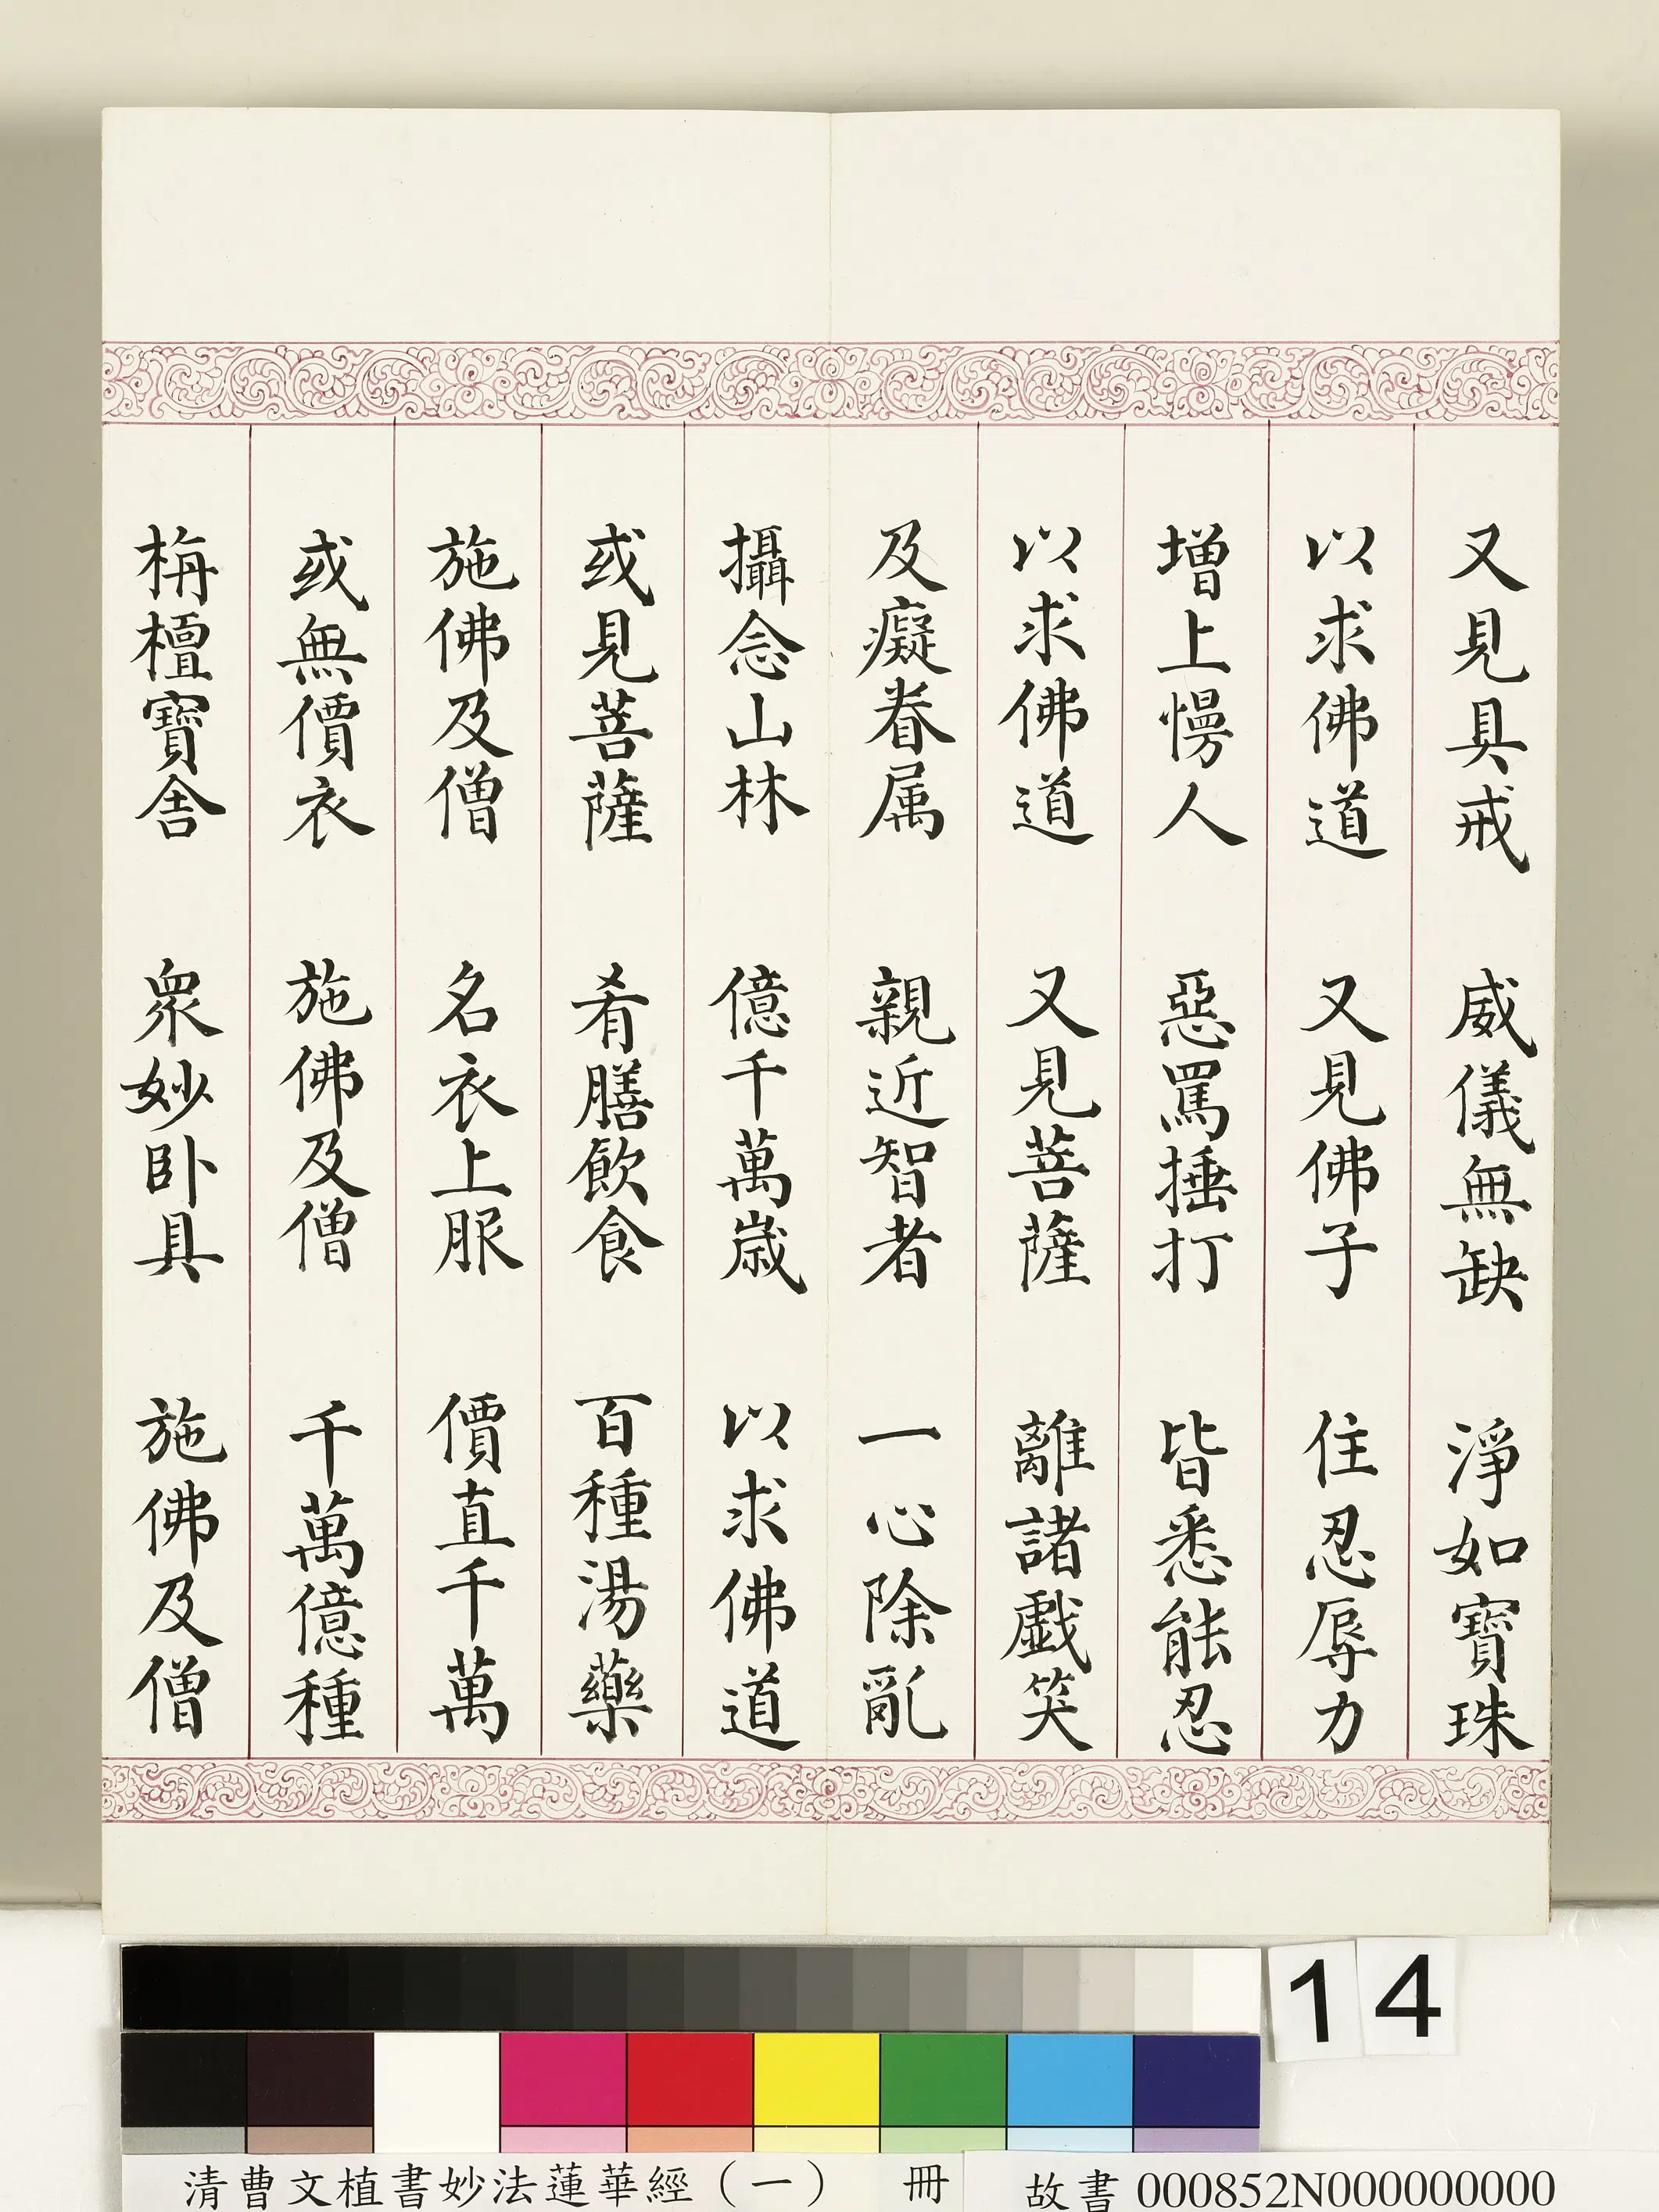 又見具戒　威儀無缺　淨如寶珠
以求佛道　又見佛子　住忍辱力
增上慢人　惡罵捶打　皆悉能忍
以求佛道　又見菩薩　離諸戯笑
及癡眷属　親近智者　一心除亂
攝念山林　億千萬歲　以求佛道
或見菩薩　肴膳飲食　百種湯藥
施佛及僧　名衣上服　價直千萬
或無價衣　施佛及僧　千萬億種
栴檀寶舎　衆妙卧具　施佛及僧
14
清曹文植書妙法蓮華經（一）　冊
故書000852N000000000